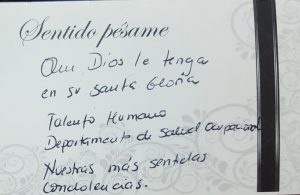 Sentido pésame
Que Dios le tenga
en su Santa Gloria
Talento Humano
Departamento de Salud Ocupacional
Nuestras más sentidas
condolencias.